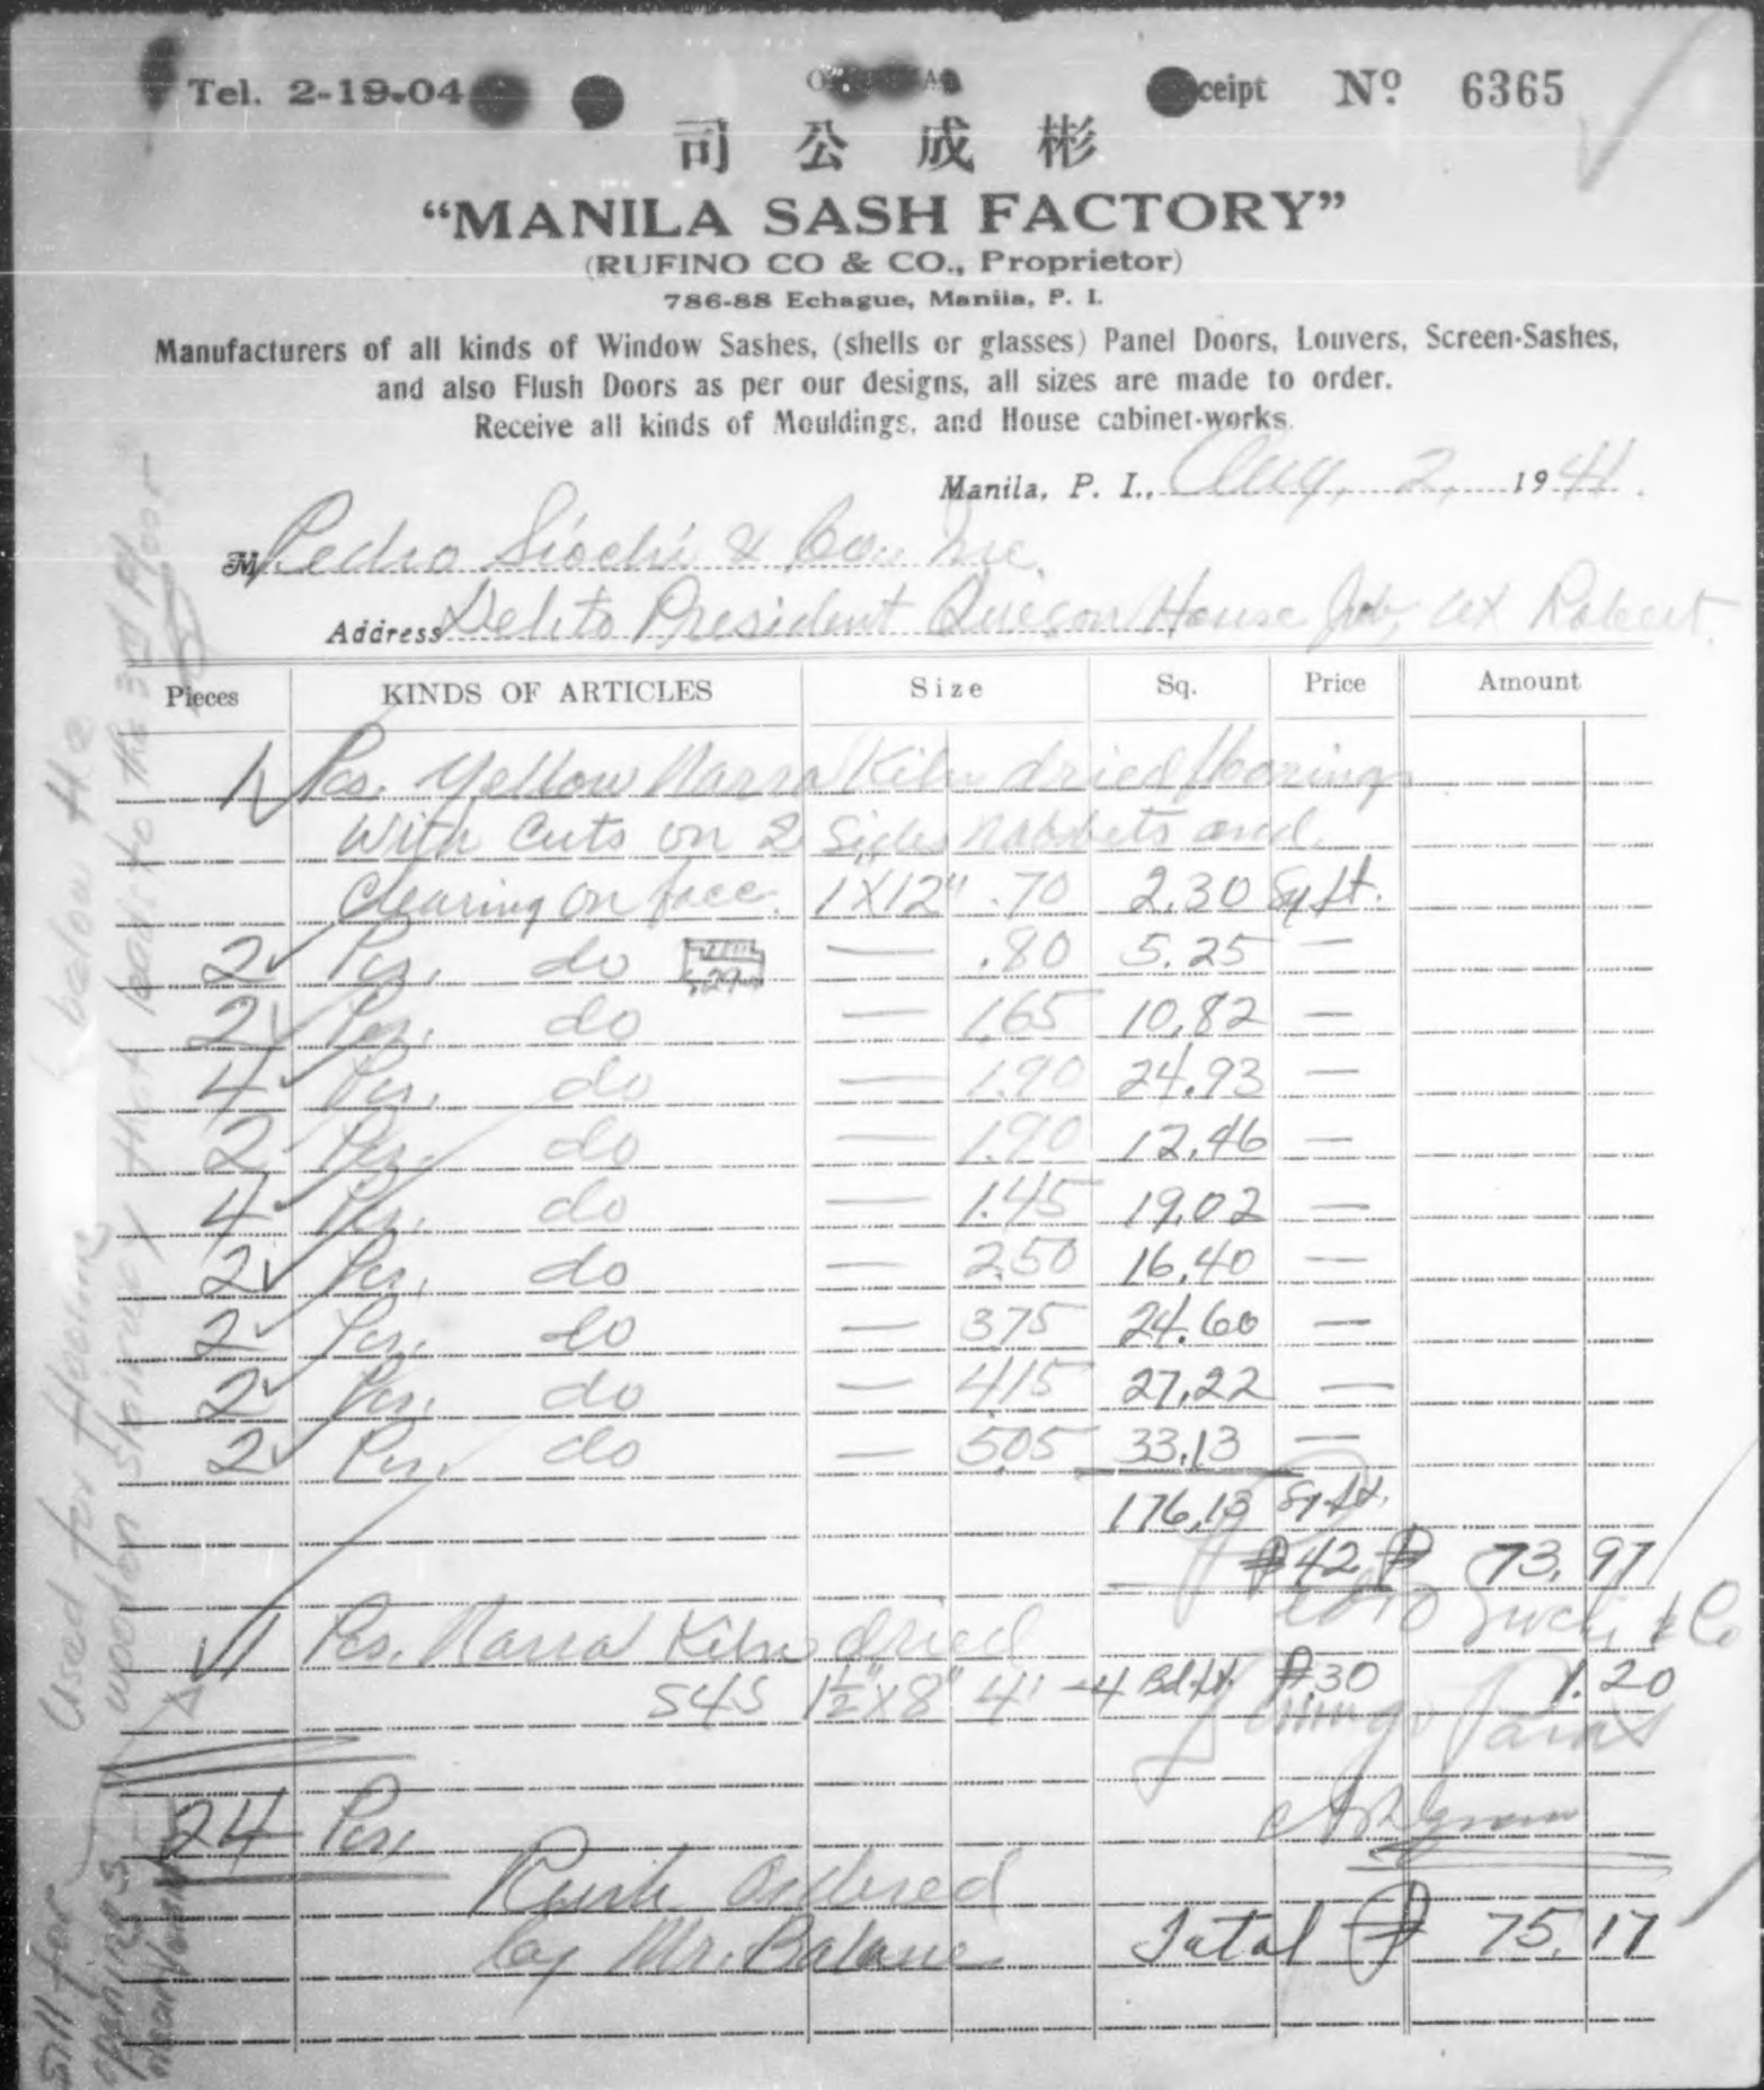 Tel. 2-19-04
ceipt Nº 6365
司公成彬
“MANILA SASH FACTORY”
(RUFINO CO & CO., Proprietor)
786-88 Echague, Manila, P. I.
Manufacturers of all kinds of Window Sashes, (shells or glasses) Panel Doors, Louvers, Screen-Sashes,
and also Flush Doors as per our designs, all sizes are made to order.
Receive all kinds of Mouldings, and House cabinet-works.
Manila, P. I., Aug. 2, 1941.
M Pedro Siochi & Co. Inc.
Address Del. to President Quezon House Job, at Robert
Pieces KINDS OF ARTICLES Size Sq. Price Amount
1 Pcs. Yellow Narra Kiln dried floorings
with cuts on 2 sides rabbets and
clearing on face. 1X12" .70 2.30 Sq ft.
2 Pcs. do — .80 5.25 —
2 Pcs. do — 1.65 10.82 —
4 Pcs. do — 1.90 24.93 —
2 Pcs. do — 1.90 12.46 —
4 Pcs. do — 1.45 19.02 —
2 Pcs. do — 2.50 16.40 —
2 Pcs. do — 375 24.60 —
2 Pcs. do — 415 27.22 —
2 Pcs. do — 505 33.13 —
176.13 Sq. ft.
₱.42 ₱ 73.97
1 Pcs. Narra Kiln dried
S4S 1½" x 8" 4' - 4 Bd. ft. ₱.30 1.20
24 Pcs.
Rush Ordered
by Mr. Balane
Total ₱ 75.17
Used for flooring below the
wooden stairway that leads to the 3rd Floor
Sill for
openings